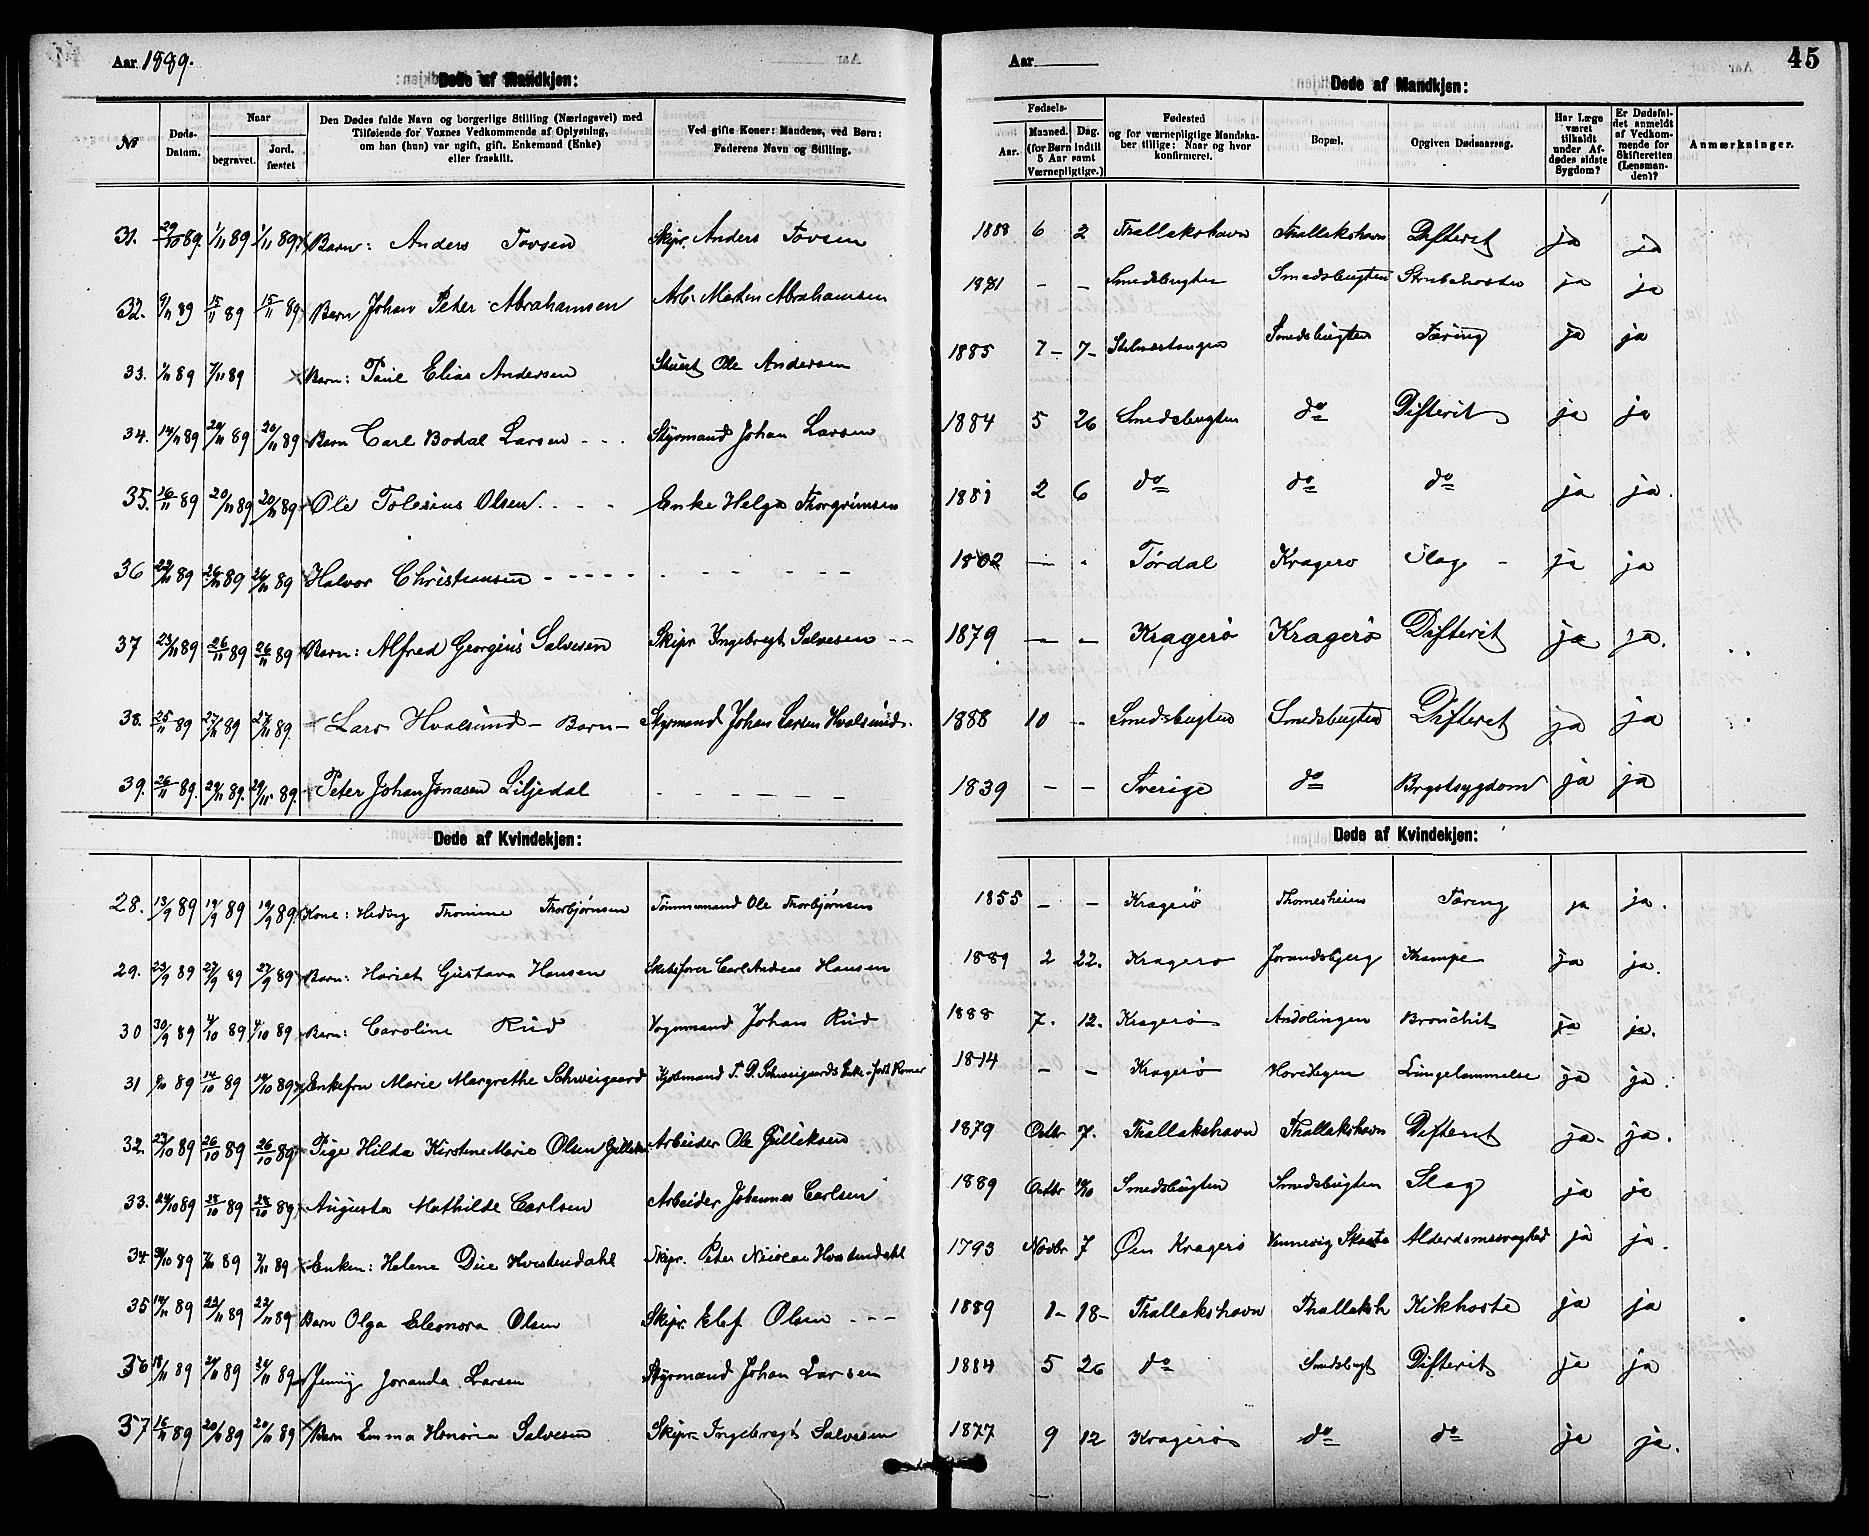 Aar 1889.
Døde af Mandkjøn:
№
Døds-Datum.
Naar
begravet.
Jord. fæstet
Den Dødes fulde Navn og borgerlige Stilling (Næringsvei) med
Tilføiende for Voxnes Vedkommende af Oplysning,
om han (hun) var ugift, gift, Enkemand (Enke)
eller fraskilt.
Ved gifte Koner: Mandens, ved Børn:
Faderens Navn og Stilling.
31. 29/10 89. 1/11 89 1/11 89 Barn: Anders Tovsen Skipr. Anders Tovsen
32. 9/11 89 15/11 89 15/11 89 Barn Johan Peter Abrahamsen Arb. Morten Abrahamsen
33. 1/11 89 7/11 89 Barn: Paul Elias Andersen Ole Andersen
34. 14/11 89 20/11 89 20/11 89 Barn Carl Bodal Larsen - - - Styrmand Johan Larsen
35. 16/11 89 20/11 89 20/11 89 Ole Tolesius Olsen - - - Enke Helga Thorgrimsen
36 22/11 89 26/11 89 26/11 89 Halvor Christiansen - - - - -
37 23/11 89 26/11 89 26/11 89 Barn: Alfred Georgius Salvesen Skipr Ingebregt Salvesen - -
38. 25/11 89 27/11 89 27/11 89. Lars Hvalsund - Barn - Styrmand Johan Larsen Hvalsund.
39. 26/11 89. 29/11 89. 29/11 89. Peter Johan Jonasen Liljedal - - - - - -
Døde af Kvindekjøn:
28. 13/9 89 19/9 89 19/9 89 Kone: Hedvig Thomine Thorbjørnsen Tømmermand Ole Thorbjørnsen
29. 23/9 89 27/9 89 27/9 89 Barn: Hariet Gustava Hansen Carl Andreas Hansen
30 30/9 89 4/10 89 4/10 89 Barn: Caroline Rud Vognmand Johan Rud
31 9/10 89 14/10 89 14/10 89 Enkefru Marie Margrethe Schweigaard Kjøbmand T. D. Schweigaards Enke
32. 23/10 89 26/10 89 26/10 89 Pige Hilda Kirstine Marie Olsen Arbeider Ole Gulliksen
33. 24/10 89 28/10 89 28/10 89 Augusta Mathilde Carlsen Arbeider Johannes Carlsen
34. 30/10 89 7/11 89 7/11 89 Enken: Helene Due Hvistendahl Skipr. Peter Nicolai Hvistendahl
35 14/11 89 22/11 89 22/11 89 Barn Olga Eleonora Olsen Skipr. Elef Olsen - - -
36 18/11 89 21/11 89 21/11 89 Jenny Joranda Larsen Styrmand Johan Larsen
37 16/11 89 20/11 89 20/11 89 Barn Emma Honoria Salvesen Skipr. Ingebregt Salvesen
Aar
45
Døde af Mandkjøn:
Fødsels-
Aar.
Maaned. Dag.
(for Børn indtil
5 Aar samt
Værnepligtige.)
Fødested
og for værnepligtige Mandska-
ber tillige: Naar og hvor
konfirmeret.
Bopæl.
Opgiven Dødsaarsag.
Har Læge
været
tilkaldt
under Af-
dødes sidste
Sygdom?
Er Dødsfal-
det anmeldt
af Vedkom-
mende for
Skifteretten
(Lensman-
den)?
Anmærkninger.
1888 6 2 Thallakshavn Thallakshavn Difterit ja ja
1881 - - Smedsbugten Smedsbugten Strubehoste ja ja
1885 7 - 7 - Smedsbugten Tæring ja ja
1884 5 26 Smedsbugten do Difterit ja ja
1881 2 6 do do do ja ja.
1802 - - Tørdal Kragerø Slag - ja ja
1879 - - Kragerø Kragerø Difterit ja ja.
1888 10 - Smedsbugten Smedsbugten Difterit ja ja
1839 - - Sverige do Brystsygdom ja ja
Døde af Kvindekjøn:
1855 - - Kragerø Thomesheien Tæring ja ja.
1889 2 22. Kragerø Jorandsbjerg Krampe ja ja.
1888 7. 12. Kragerø Andølingen Bronchit ja ja.
1814 - - Kragerø Hovedegen Lungelammelse ja ja.
1879 Octbr 7. Thallakshavn Thallakshavn Difterit ja. ja.
1889 Octbr Smedsbugten Smedsbugten Slag ja ja
1793 Novbr 7 Øen Kragerø Alderdomssvaghed ja ja.
1889 1 - 18 - Thallakshavn Thallaksh Kikhoste ja ja
1884 5 26 do Smedsbugt Difterit ja ja
1877 9 12 Kragerø do do ja ja.